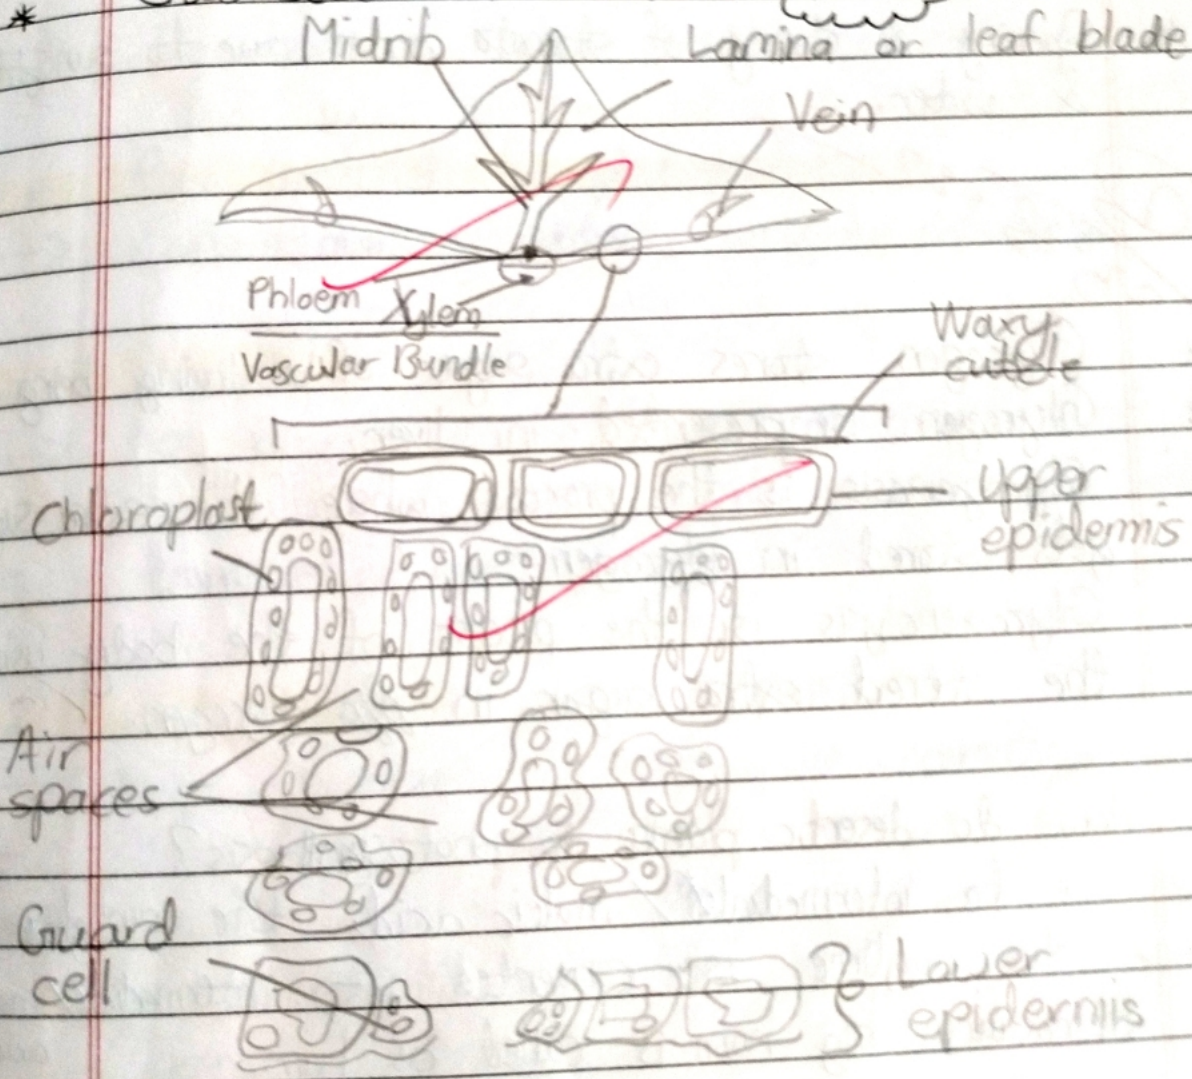 Midrib
Lamina or leaf blade
Vein
Phloem Xylem
Vascular Bundle
Waxy
cuticle
Chloroplast
Upper
epidermis
Air
spaces
Guard
cell
Lower
epidermis